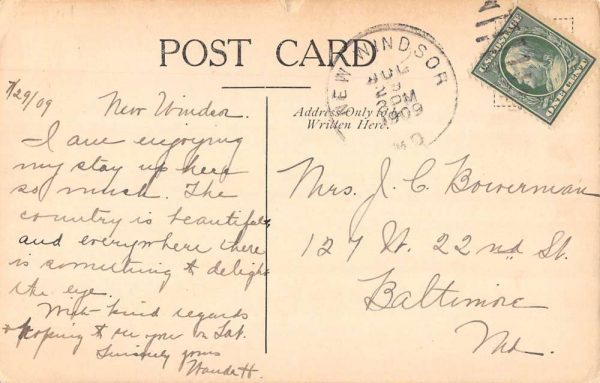 POST CARD
NEW WINDSOR
JUL
1909
M
MD
U.S. POSTAGE
ONE CENT
7/29/09
New Windsor.
I am enjoying
my stay up here
so much. The
country is beautiful,
and everywhere there
is something to delight
the eye.
With kind regards
& hoping to see you on Sat.
Sincerely yours
Address Only to be
Written Here.
Mrs. J. C. Bowerman
127 W. 22nd St.
Baltimore
Md.